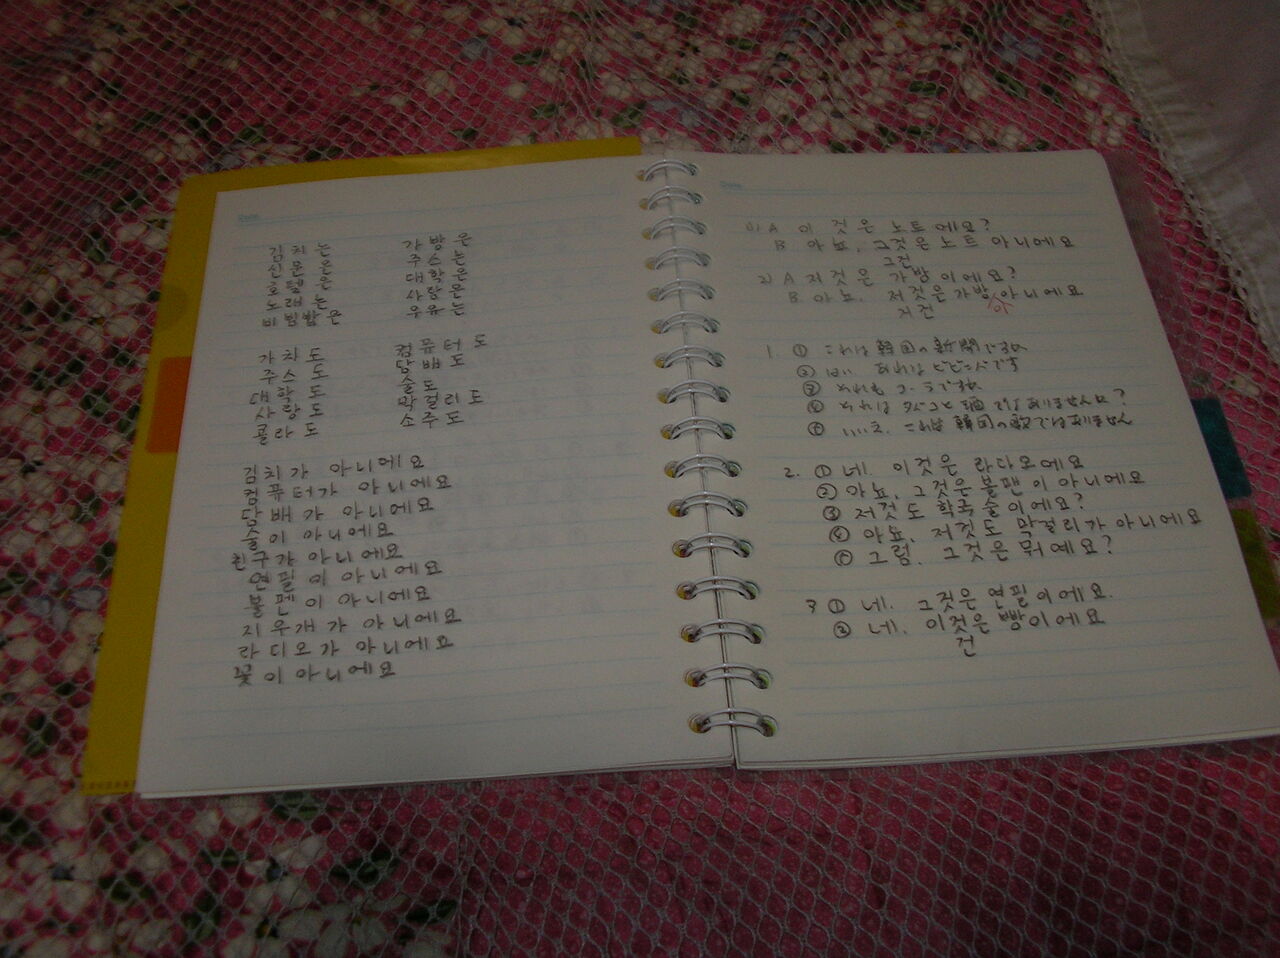 Date
김치는 가방은
신문은 주스는
호텔은 대학은
노래는 사랑은
비빔밥은 우유는
가치도 컴퓨터도
주스도 담배도
대학도 술도
사랑도 막걸리도
콜라도 소주도
김치가 아니에요
컴퓨터가 아니에요
담배가 아니에요
술이 아니에요
친구가 아니에요
연필이 아니에요
볼펜이 아니에요
지우개가 아니에요
라디오가 아니에요
꽃이 아니에요
Date
1) A 이것은 노트에요?
B 아뇨, 그것은 노트 아니에요
그건
2) A 저것은 가방이에요?
B 아뇨. 저것은 가방 아니에요
저건 이
1. ① これは韓国の新聞ですね
② はい あれはビビンバです
③ それもコーラですね
④ それは タバコと酒ではありませんか?
⑤ いいえ. これは韓国の歌ではありません
2. ① 네. 이것은 라디오에요
② 아뇨, 그것은 볼팬이 아니에요
③ 저것도 한국술이에요?
④ 아뇨, 저것도 막걸리가 아니에요
⑤ 그럼, 그것은 뭐예요?
3 ① 네. 그것은 연필이에요.
② 네. 이것은 빵이에요
건